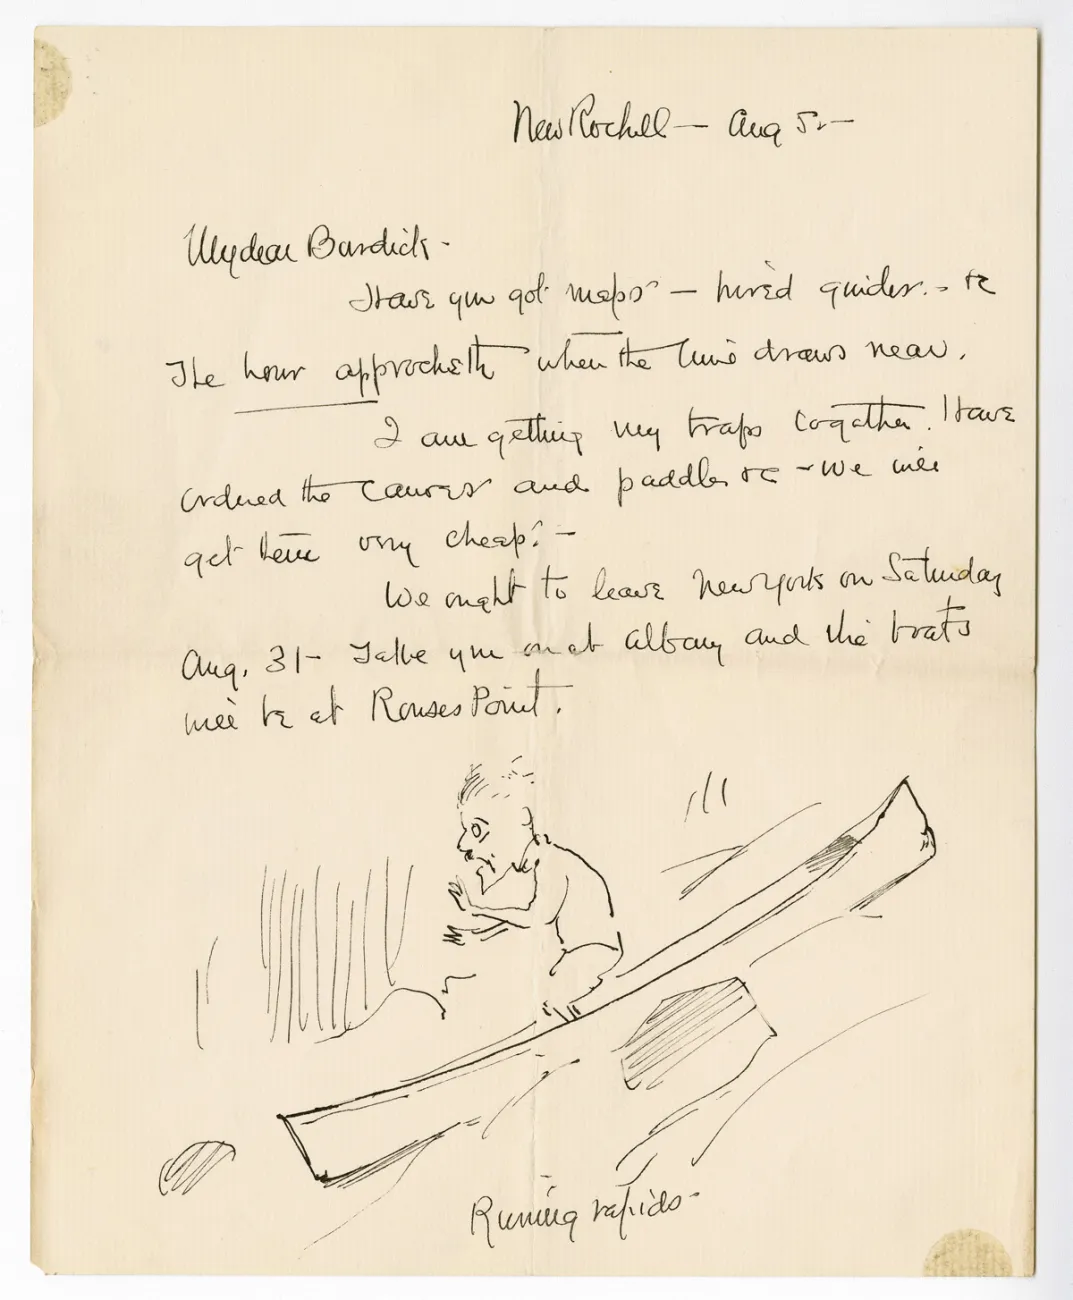 New Rochell — Aug 5 —
My dear Burdick -
Have you got maps — hired guides. - &c
The hour approcheth when the time draws near.
I am getting my traps togather. Have
ordered the canoes and paddles &c - We will
get them very cheap. —
We ought to leave New York on Saturday
Aug. 31 - Take you on at Albany and the boats
will be at Rouses Point.
Runing rapids -